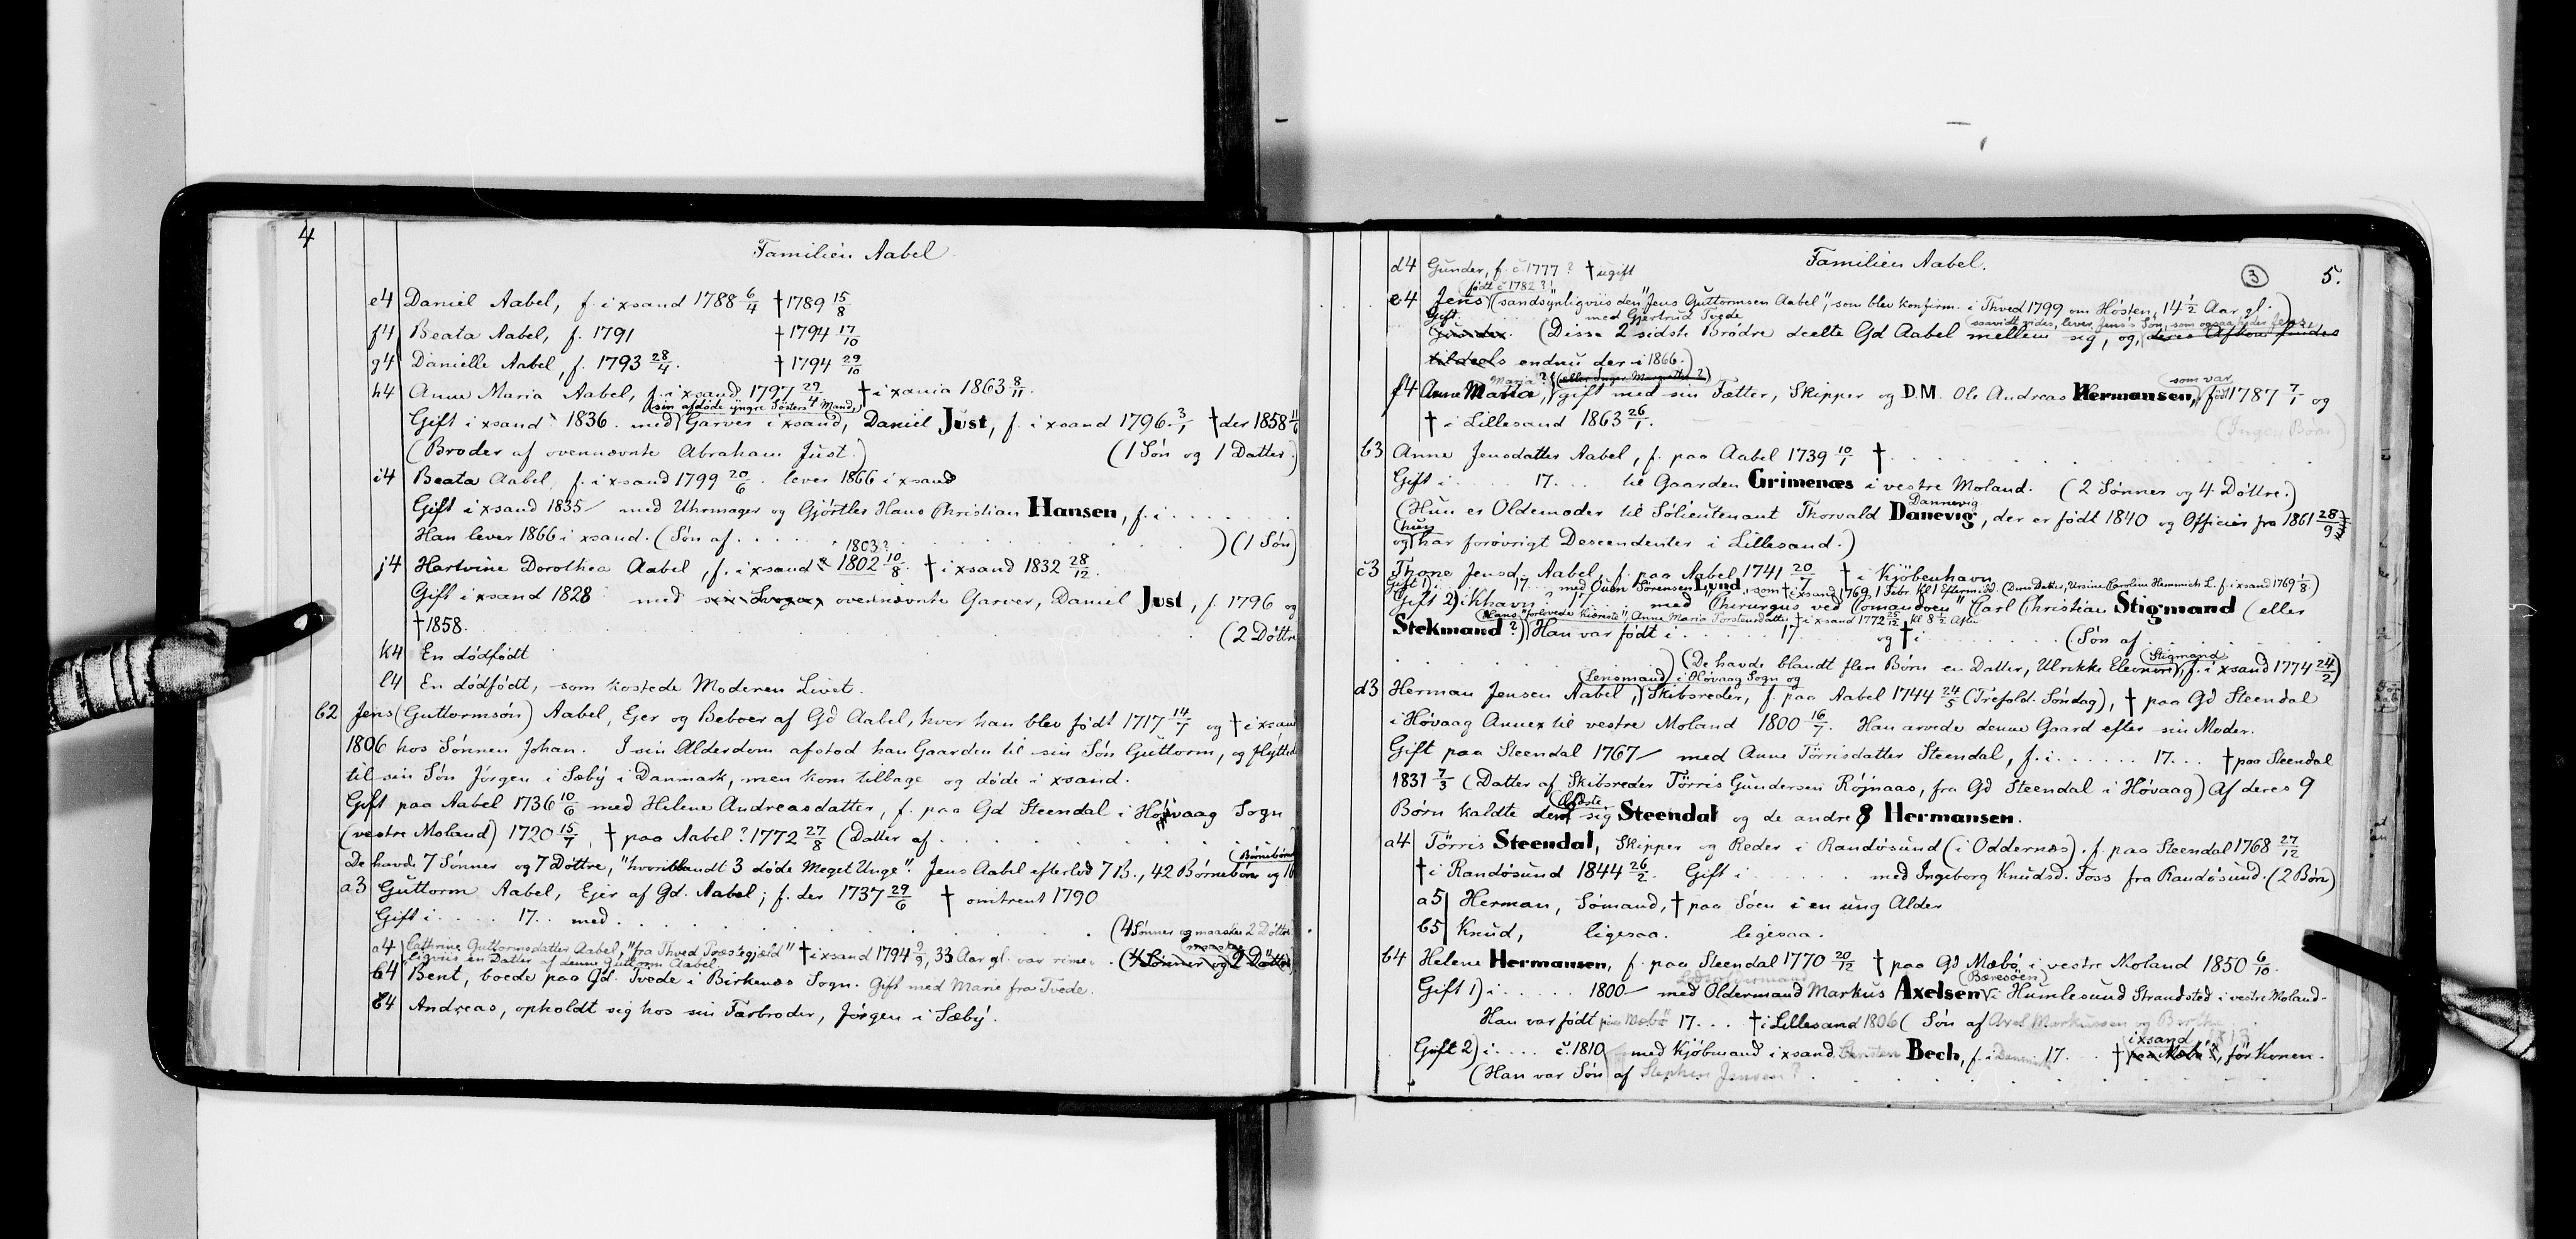 4
Familien Aabel
e4 Daniel Aabel, f. i xsand 1788 6/4 †1789 15/8
f4 Beata Aabel, f. 1791 †1794 17/10
g4 Danielle Aabel, f. 1793 28/4. †1794 29/10
h4 Anne Maria Aabel, f. i xsand 1797 29/4 † i xania 1863 8/11.
(sin afdøde yngre Søsters Mand,)
Gift i xsand 1836. med Garver i xsand, Daniel Just, f. i xsand 1796 3/1 † der 1858 11/6
(Broder af ovennævnte Abraham Just.) (1 Søn og 1 Datter.)
i4 Beata Aabel, f. i xsand 1799 20/6. lever 1866 i xsand
Gift i xsand 1835 med Uhrmager og Gjørtler Hans Christian Hansen, f. i . . . . . .
Han lever 1866 i xsand. (Søn af . . . . . . . . . . ) (1 Søn)
1803?
j4 Hartvine Dorothea Aabel, f. i xsand 1802 10/8. † i xsand 1832 28/12.
Gift i xsand 1828 med sin Svoger, ovennævnte Garver, Daniel Just, f. 1796 og
†1858. (2 Døttre
k4 En dødfødt
l4 En dødfødt, som kostede Moderen Livet.
b2 Jens (Guttormsøn) Aabel, Ejer og Beboer af Gd Aabel, hvor han blev født 1717 14/7 og † i xsan
1806 hos Sønnen Johan. I sin Alderdom afstod han Gaarden til sin Søn Guttorm, og flytted
til sin Søn Jørgen i Sæby i Danmark, men kom tilbage og døde i xsand.
Gift paa Aabel 1736 10/6 med Helene Andreasdatter, f. paa Gd Steendal i Høvaag Sogn
(vestre Moland) 1720 15/7, † paa Aabel? 1772 27/8 (Datter af . . . . . . . .
De havde 7 Sønner og 7 Døttre, "hvoriblandt 3 døde Meget Unge". Jens Aabel efterlod 7 B., 42 Børnebørn og 16
(Børnebørns
a3 Guttorm Aabel, Ejer af Gd. Aabel; f. der 1737 29/6 † omtrent 1790
Gift i . . . . 17.. med . . . . . . . . . (4 Sønner og maaske 2 Døttre.
a4 Cathrine Guttormsdatter Aabel, "fra Thved Præstegjæld" † i xsand 1794 9/9, 33 Aar gl. var rime- (maaske
ligviis en Datter af denne Guttorm Aabel. (4 Sønner og 2 Døttre)
b4 Bent, boede paa Gd. Tvede i Birkenæs Sogn. Gift med Marie fra Tvede.
c4 Andreas, opholdt sig hos sin Farbroder, Jørgen i Sæby.
Familien Aabel.
3
5.
d4 Gunder, f. c. 1777? † ugift
født c. 1782?
e4 Jens (sandsynligviis den "Jens Guttormsen Aabel", som blev konfirm. i Thved 1799 om Høsten, 14 1/2 Aar gl.)
Gift med Gjertrud Tvede
saavidt vides, lever Jens's Søn, som ogsaa heder Jens,
Gunder. (Disse 2 sidste Brødre deelte Gd Aabel mellem sig, og deres Afkom findes
tildeels endnu der i 1866.)
Maria? (eller Inger Margrethe?)
f4 Anne Marta, gift med sin Fætter, Skipper og D.M. Ole Andreas Hermansen, som var født 1787 7/1 og
† i Lillesand 1863 26/1.
(Ingen Børn)
b3 Anne Jensdatter Aabel, f. paa Aabel 1739 10/1 † . . . . . . .
Gift i . . . . 17. . . til Gaarden Grimenæs i vestre Moland. (2 Sønner og 4 Døttre.)
Dannevig
(Hun er Oldemoder til Søelieutenant Thorvald Danevig, der er født 1840 og Officier fra 1861 28/9
og (hun har forøvrigt Descendenter i Lillesand.)
c3 Thone Jensd. Aabel, f. paa Aabel 1741 20/7 † i Kjøbenhavn
Gift 1) i . . . 17 . med Ouen Sørensen Lund, som † i xsand 1769, 1 Febr. Kl 1 Efterm.dd. (Denne Datter, Ursine Caroline Hemmich L. f. i xsand 1769 1/8)
Gift 2) i Khavn 17 . med Chirurgus ved Comandoen Carl Christian Stigmand (eller
(Hans "forlovede Kiereste", Anne Maria Torstensdatter, † i xsand 1772 25/12 kl 8 1/2 Aften
Stekmand?) Han var født i . . . . . . 17 . . og † i . . . . . . . (Søn af . . . . . .
. . . . . ) (De havde blandt flere Børn en Datter, Ulrikke Eleonore Stigmand, f. i xsand 1774 24/2)
(Lensmand i Høvaag Sogn og
d3 Herman Jensen Aabel, Skibsreder, f. paa Aabel 1744 24/5 (Trefold. Søndag), † paa Gd Steendal
i Høvaag Annex til vestre Moland 1800 16/7. Han arvede denne Gaard efter sin Moder.
Gift paa Steendal 1767 med Anne Törrisdatter Steendal, f. i . . . . . . 17. . . † paa Steendal
1831 7/3 (Datter af Skibsreder Törris Gundersen Röjnaas, fra Gd Steendal i Høvaag) Af deres 9
Børn kaldte den ældste sig Steendal og de andre 8 Hermansen.
a4 Törris Steendal, Skipper og Reder i Randøsund (i Oddernæs). f. paa Steendal 1768 27/12
† i Randøsund 1844 26/2. Gift i . . . . . . med Ingeborg Knudsd. Foss fra Randøsund. (2 Børn)
a5 Herman, Sømand, † paa Søen i en ung Alder
b5 Knud, ligesaa. ligesaa.
b4 Helene Hermansen, f. paa Steendal 1770 20/12 † paa Gd Mæbø i vestre Moland 1850 6/10.
(Bæresøen)
Gift 1) i . . . . . 1800 med Oldermand Markus Axelsen i Humlesund Strandsted i vestre Moland.
Han var født paa Mæbø 17. . . † i Lillesand 1806 (Søn af Axel Markussen og Berthe
i xsand 1813
Gift 2) i . . . . c. 1810 med Kjøbmand i xsand Bech, f. i 17. . † paa Mæbø?, før Konen.
(Han var Søn af Stephen Jensen?